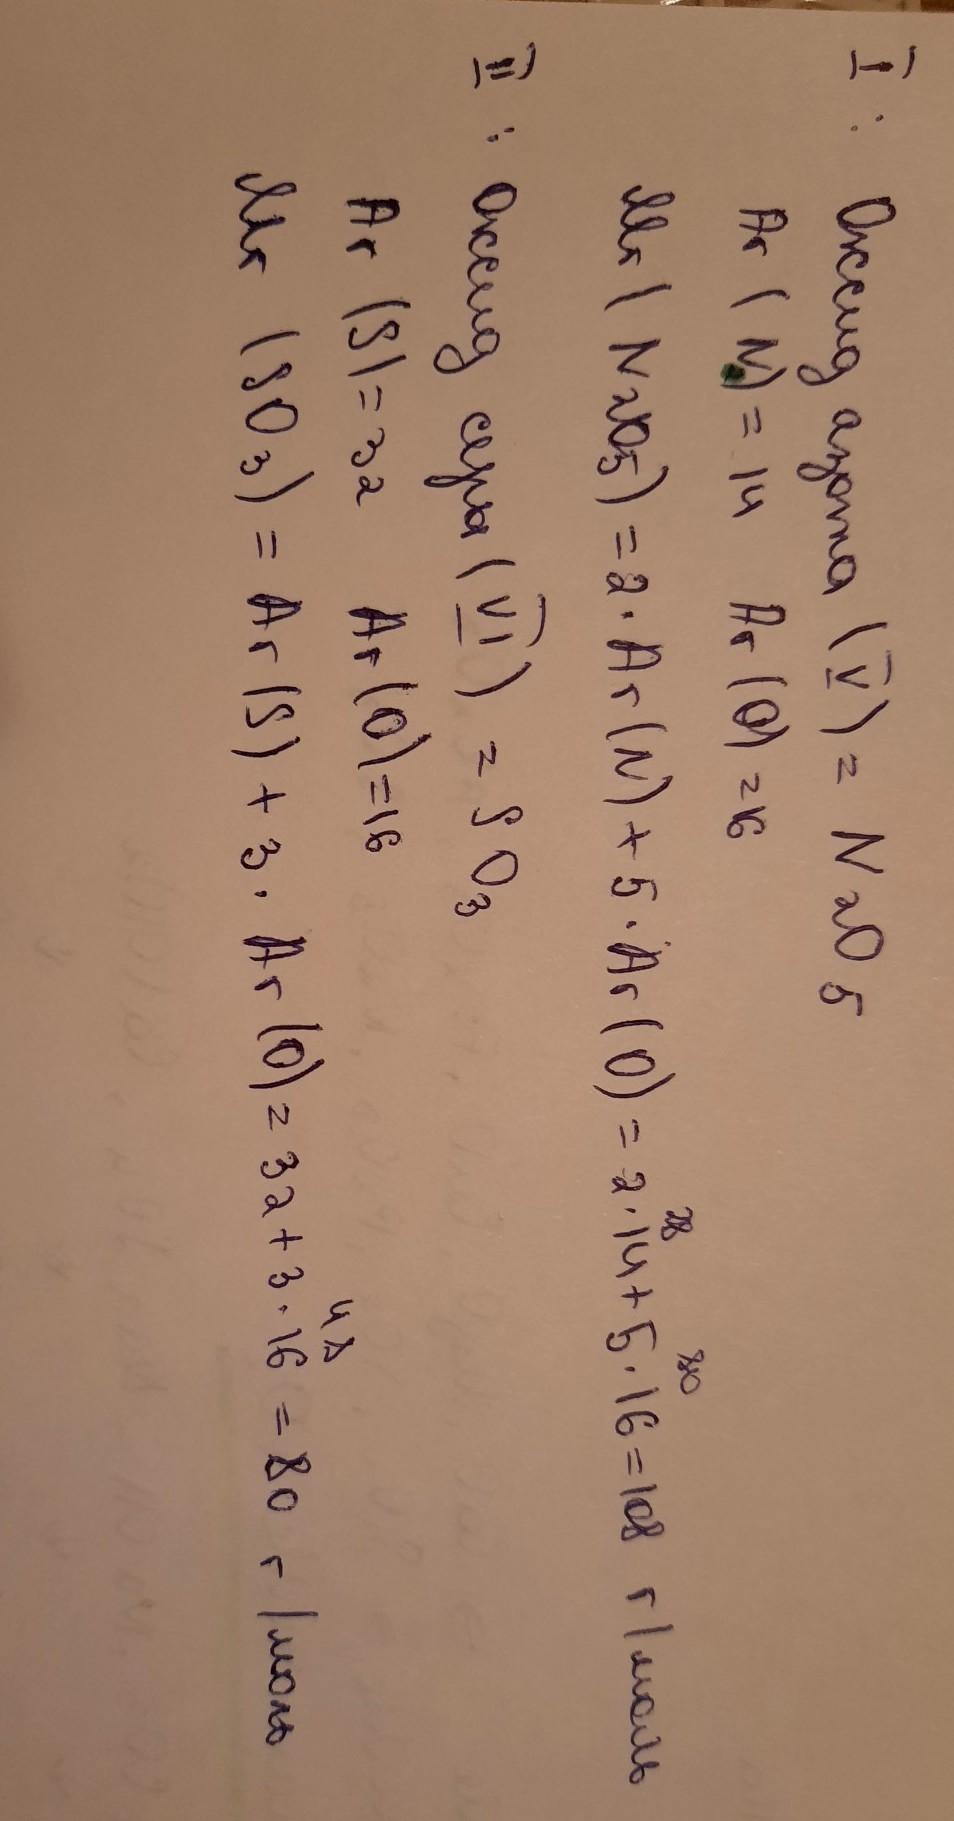 I : Оксид азота (V) = N2O5
Ar (N) = 14 Ar (O) = 16
Mr (N2O5) = 2 · Ar (N) + 5 · Ar (O) = 2 · 14 + 5 · 16 = 108 г/моль
28 80
II : Оксид серы (VI) = SO3
Ar (S) = 32 Ar (O) = 16
Mr (SO3) = Ar (S) + 3 · Ar (O) = 32 + 3 · 16 = 80 г/моль
48